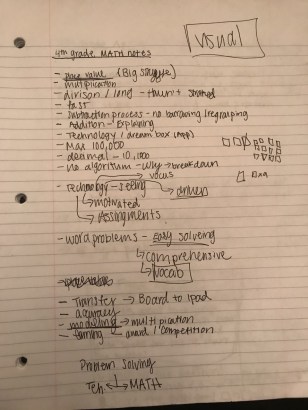 visual
4th grade MATH notes
- place value (Big struggle)
- multiplication
- divison / long -
- fast
- Subtraction process - no borrowing/regrouping
- Addition - Explaining
- Technology / dream box (App)
- Max 100,000
- decimal - 10,000
- no algorithm - Why → breakdown
vocus
- Technology - seeing
→ driven
→ motivated
→ Assignments
- word problems - Easy solving
→ comprehensive
→ vocab
- Transfer → Board to ipad
- accuracy
- modeling → multipication
- gaming - award / competition
Problem Solving
Tch ← → MATH